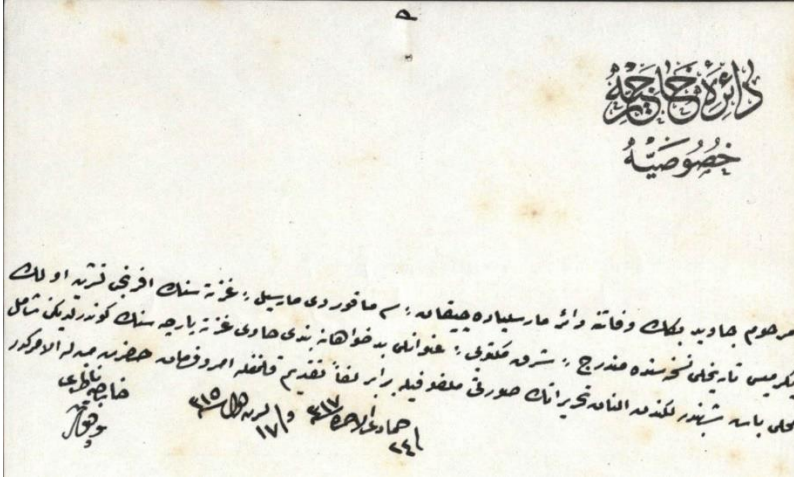 دائرۀ خارجیه
خصوصیه
مرحوم جاوید بكك وفاتنه دائر مارسلیاده چیقان سمافور دی مارسیل غزته سنك افرنجی تشرین اولك
یكرمیسی تاریخلی نسخه سنده مندرج شرق مكتوبی عنوانلی بدخواهانه بندی حاوی غزته پارچه سنك كوندرلدیكنی شامل
محلی باش شهبندرلكندن النان تحریراتك صورتی ملفوفیله برابر لفاً تقدیم قلنمغله امر و فرمان حضرت من له الامركدر
فی ٢٤ جمادی الاخره سنه ٣١٧ و فی ١٧ تشرین اول سنه ٣١٥
خارجیه ناظری
توفیق